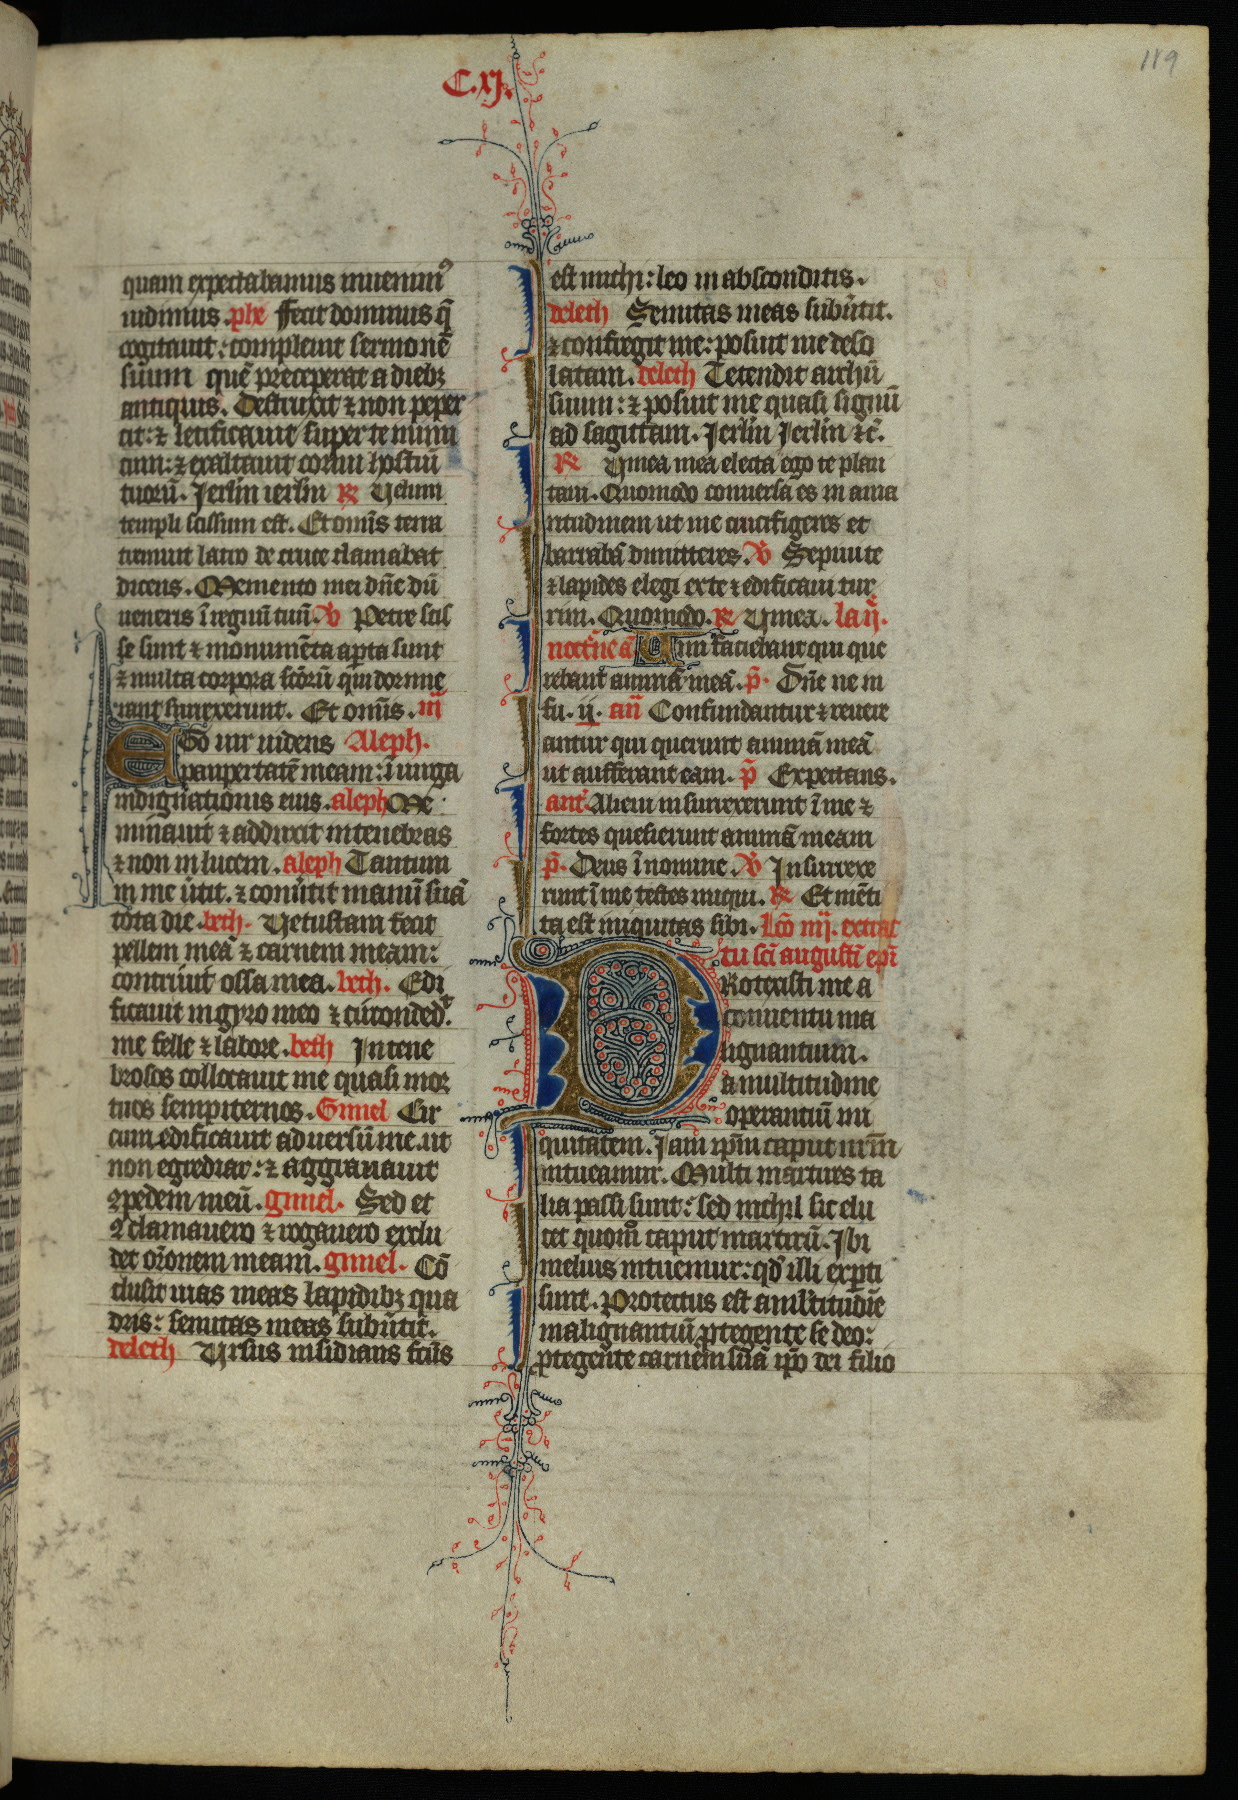 119
C.xj.
quam expectabamus inuenim᷒
uidimus. phe Fecit dominus q̄
cogitauit: compleuit sermonē
suum quē preceperat a diebꝫ
antiquis. Destruxit ⁊ non peper
cit: ⁊ letificauit super te inimi
cum: ⁊ exaltauit cornu hostiū
tuorū. Jerlm̄ ierlm̄ ℟ Velum
templi scissum est. Et om̄is terra
tremuit latro de cruce clamabat
dicens. Memento mei dn̄e dū
ueneris ī regnū tuū. ℣ Petre scis
se sunt ⁊ monumēta aꝑta sunt
⁊ multa corpora sc̄orū qui dormie
rant surrexerunt. Et om̄is. iij
EGo uir uidens Aleph.
paupertatē meam: ī uirga
indignationis eius. aleph Me
minauit ⁊ adduxit in tenebras
⁊ non in lucem. aleph Tantum
in me u̇tit. ⁊ conu̇tit manū suā
tota die. beth. Vetustam fecit
pellem meā ⁊ carnem meam:
contriuit ossa mea. beth. Edi
ficauit in gyro meo ⁊ cu̇condedͭ.
me felle ⁊ labore. beth In tene
brosos collocauit me quasi moꝝ
tuos sempiternos. Gimel Cir
cum edificauit aduersū me. ut
non egrediar: ⁊ aggrauauit
ꝯpedem meū. gimel. Sed et
ꝯ clamauero ⁊ rogauero exclu
det or̄onem meam. gimel. Cō
clusit uias meas lapidibꝫ qua
dris: semitas meas subu̇tit.
deleth Vrsus insidians fc̄us
est michi: leo in absconditis.
deleth Semitas meas subu̇tit.
⁊ confregit me: posuit me deso
latam. deleth Tetendit archū
suum: ⁊ posuit me quasi signū
ad sagittam. Jerlm̄ Jerlm̄ ⁊c̄.
℟ Vinea mea electa ego te plan
taui. Quomodo conuersa es in ama
ritudinem ut me crucifigeres et
barrabā dimitteres. ℣ Sepiui te
⁊ lapides elegi ex te ⁊ edificaui tur
rim. Quomodo. ℟ Vinea.
noct̄ne ā Uim faciebant qui que
rebant animā meā. p̄. Dn̄e ne in
fu. ij. an̄ Confundantur ⁊ reuere
antur qui querunt animā meā
ut aufferant eam. p̄ Expectans.
ant̄ Alieni insurrexerunt ī me ⁊
fortes quesierunt animā meam
p̄. Deus ī nomine. ℣ Insurrexe
runt ī me testes iniqui. ℟ Et mēti
ta est iniquitas sibi. Lc̄o iiij. ex trac
tu sc̄i augustī epī
PRotexisti me a
conuentu ma
lignantium.
a multitudine
operantiū ini
quitatem. Jam ip̄m caput nr̄m
intueamur. Multi martires ta
lia passi sunt: sed nichil sic elu
cet quom̊ caput martirū. Jbi
melius intuemur: qd̓ illi exꝑti
sunt. Protectus est a mltitudīe
malignantiū ꝓtegente se deo:
ꝓtegente carnem suā ip̄o dei filio